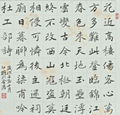 花近高樓傷客心萬
方多難此登臨錦江
春色來天地玉壘浮
雲變古今北極朝廷
終不改西山寇盜莫
相侵可憐後主還祠
廟日暮聊為梁甫吟
杜工部詩